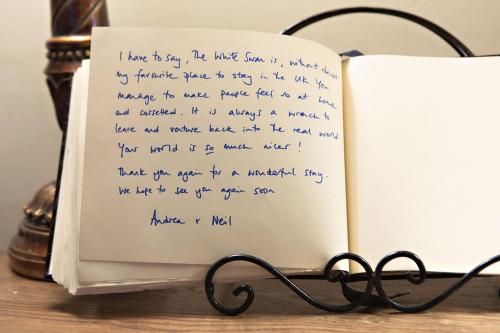 I have to say, The White Swan is, without doubt
my favourite place to stay in the UK. You
manage to make people feel so at home
and cossetted. It is always a wrench to
leave and venture back into the real world
Your world is so much nicer!
Thank you again for a wonderful stay.
We hope to see you again soon
Andrea + Neil